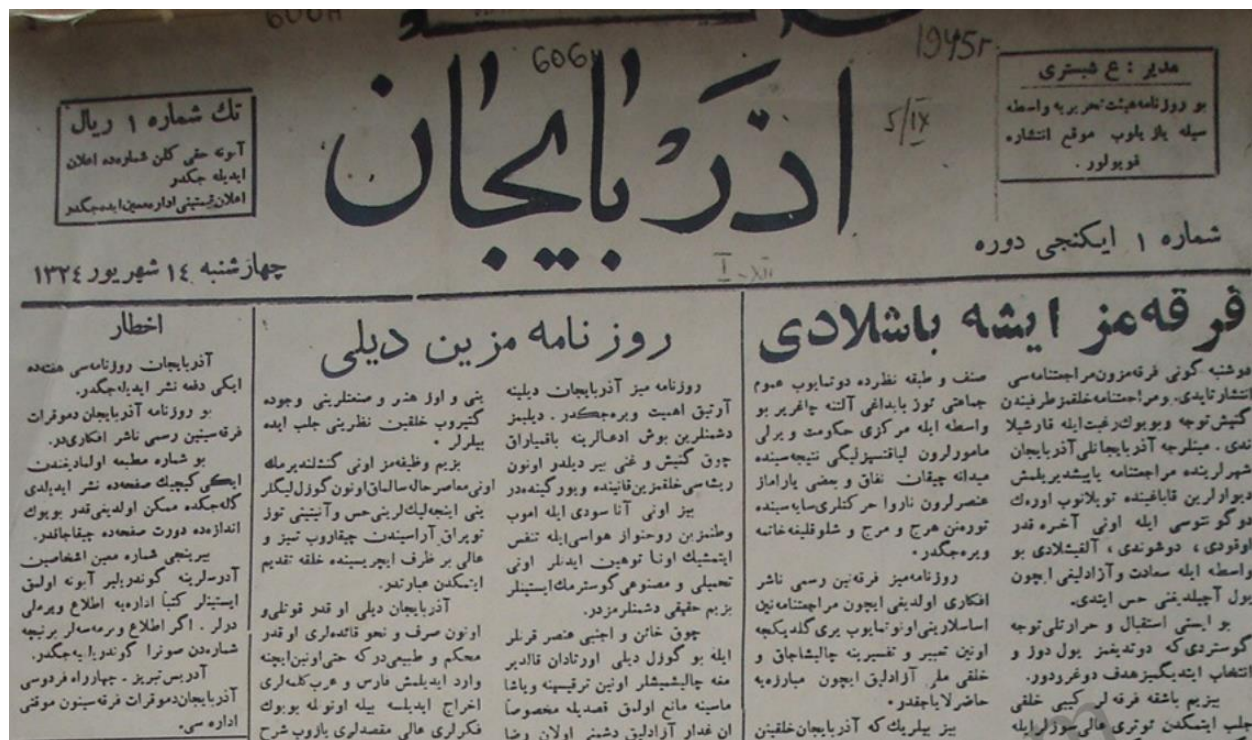 606н
1945г.
5/IX
I-XII
آذربایجان
مدیر : ع شبستری
بو روزنامه هیئت تحریریه واسطه
سیله یازیلوب موقع انتشاره
قویولور .
شماره ۱ ایکنجی دوره
تك شماره ۱ ریال
آبونه حقی کلن شماره‌ده اعلان
ایدیله جکدر
اعلان قیمتینی اداره معین ایده جکدر
چهارشنبه ۱٤ شهریور ۱۳۲٤
فرقه‌مز ایشه باشلادی
دوشنبه گونی فرقه‌مزون مراجعتنامه‌سی
انتشار تاپدی. ومراجعتنامه خلقمز طرفیندن
گنیش توجه وبویوك رغبت ایله قارشیلا
ندی . مینلرجه آذربایجانلی آذربایجان
شهرلرینده مراجعتنامه یاپیشدیریلمش
دیوارلرین قاباغینده توپلانوب اوره‌ك
دوگونتوسی ایله اونی آخره قدر
اوقودی ، دوشوندی ، آلقیشلادی بو
واسطه ایله سعادت و آزادلیغی ایچون
یول آچیلدیغنی حس ایتدی.
بو ایستی استقبال و حرارتلی توجه
گوستردی که دوتدیغمز یول دوز و
انتخاب ایتدیگیمز هدف دوغرودور.
بیزیم باشقه فرقه لر کیبی خلقی
جلب ایتمکدن ئوتری عالی سوزلر ایله
صنف و طبقه نظرده دوتمایوب عموم
جماعتی ئوز بایداغی آلتنه چاغریر بو
واسطه ایله مرکزی حکومت و یرلی
مامورلرون لیاقتسیزلیگی نتیجه‌سینده
میدانه چیقان نفاق و بعضی یاراماز
عنصرلرون ناروا حرکتلری سایه‌سینده
تورمن هرج و مرج و شلوقلیغه خاتمه
ویره جگدر .
روزنامه‌میز فرقه‌نین رسمی ناشر
افکاری اولدیغی ایچون مراجعتنامه‌نین
اساسلارینی اونوتمایوب یری گلدیکجه
اونین تعبیر و تفسیرینه چالیشاجاق و
خلقی ملی آزادلیق ایچون مبارزه‌یه
حاضرلایاجقدر.
بیز بیلریك که آذربایجان خلقینن
روزنامه مزین دیلی
روزنامه میز آذربایجان دیلینه
آرتیق اهمیت ویره‌جکدر . دیلیمز
دشمنلرین بوش ادعالرینه باقمیاراق
چوق گنیش و غنی بیر دیلدر اونون
ریشه‌سی خلقمزین قانینده ویورگینده‌در
بیز اونی آنا سودی ایله اموب
وطنمزین روحنواز هواسی ایله تنفس
ایتمشیك اونا توهین ایدنلر اونی
تحمیلی و مصنوعی گوسترمك ایستینلر
بزیم حقیقی دشمنلرمزدر.
چوق خائن و اجنبی عنصر قرنلر
ایله بو گوزل دیلی اورتادان قالدیر
مغه چالیشمیشلر اونین ترقیسینه و یاشا
ماسینه مانع اولمق قصدیله مخصوصا
ان غدار آزادلیق دشمنی اولان رضا
ینی و اوز هنر و صنعتلرینی وجوده
گتیروب خلقین نظرینی جلب ایده
بیلرلر .
بزیم وظیفه‌مز اونی گنشلندیرمك
اونی معاصر حاله سالماق اونون گوزل لیگلر
ینی اینجه لیك لرینی حس و آنیتینی توز
توپراق آراسیندن چقاروب تمیز و
عالی بر ظرف ایچریسینده خلقه تقدیم
ایتمکدن عبارتدر.
آذربایجان دیلی او قدر قوتلی و
اونون صرف و نحو قائده‌لری او قدر
محکم و طبیعی درکه حتی اونین ایچنه
وارد ایدیلمش فارس و عرب کلمه‌لری
اخراج ایدیلسه بیله اونونله بویوك
فکرلری عالی مقصدلری یازوب شرح
اخطار
آذربایجان روزنامه‌سی هفته‌ده
ایکی دفعه نشر ایدیله جگدر.
بو روزنامه آذربایجان دموقرات
فرقه‌سینین رسمی ناشر افکاری‌در.
بو شماره مطبعه اولمادیغندن
ایکی کیچیك صفحه‌ده نشر ایدیلدی
گله جگده ممکن اولدیغی قدر بویوك
اندازه‌ده دورت صفحه‌ده چیقاجاقدر.
بیرینجی شماره معین اشخاصین
آدرسلرینه گوندریلیر آبونه اولمق
ایستینلر کتباً اداره‌یه اطلاع ویرملی
درلر . اگر اطلاع ویرمه‌سه‌لر برنیچه
شماره‌دن صونرا گوندریلمیه‌جگدر.
آدریس تبریز - چهارراه فردوسی
آذربایجان دموقرات فرقه‌سینون موقتی
اداره سی.